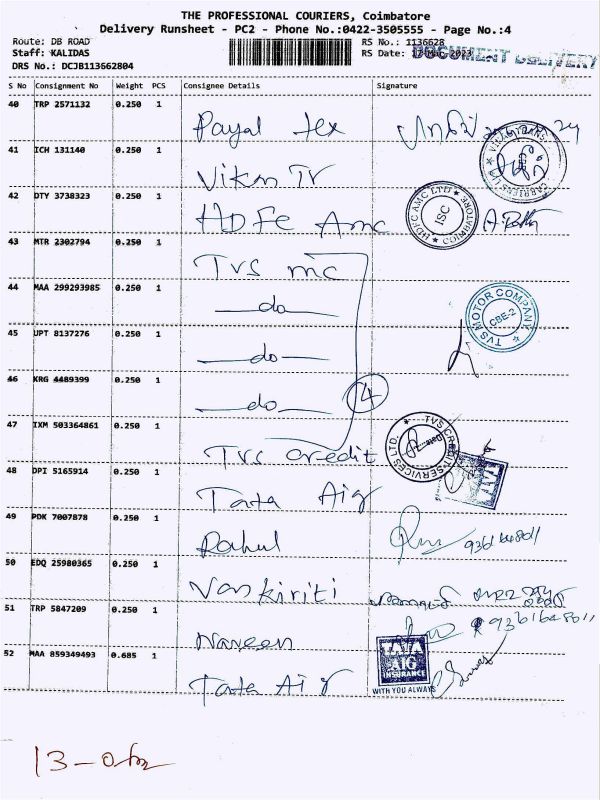 THE PROFESSIONAL COURIERS, Coimbatore
Delivery Runsheet - PC2 - Phone No.:0422-3505555 - Page No.:4
Route: DB ROAD
Staff: KALIDAS
DRS No.: DCJB113662804
RS No.: 1136628
RS Date: 17-Mar-2023
DOCUMENT DELIVERY
S No Consignment No Weight PCS Consignee Details Signature
40 TRP 2571132 0.250 1 Payal Tex
41 ICH 131140 0.250 1
42 DTY 3738323 0.250 1 HDFC Amc
HDFC AMC LTD ISC COIMBATORE
43 MTR 2302794 0.250 1 TVS mc
44 MAA 299293985 0.250 1 —do—
TVS MOTOR COMPANY CBE-2
45 UPT 8137276 0.250 1 —do—
46 KRG 4489399 0.250 1 —do— 4
47 IXM 503364861 0.250 1 TVS credit
TVS CREDIT SERVICES LTD. Date
48 DPI 5165914 0.250 1 Tata Aig
TATA
49 PDK 7007878 0.250 1 Rahul
50 EDQ 25980365 0.250 1 Vankiriti
51 TRP 5847209 0.250 1 Naveen
52 MAA 859349493 0.685 1 Tata Aig
TATA AIG INSURANCE
WITH YOU ALWAYS